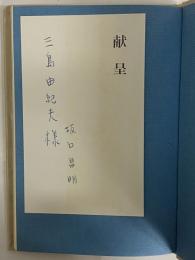 献呈
三島由紀夫様
坂口昌明